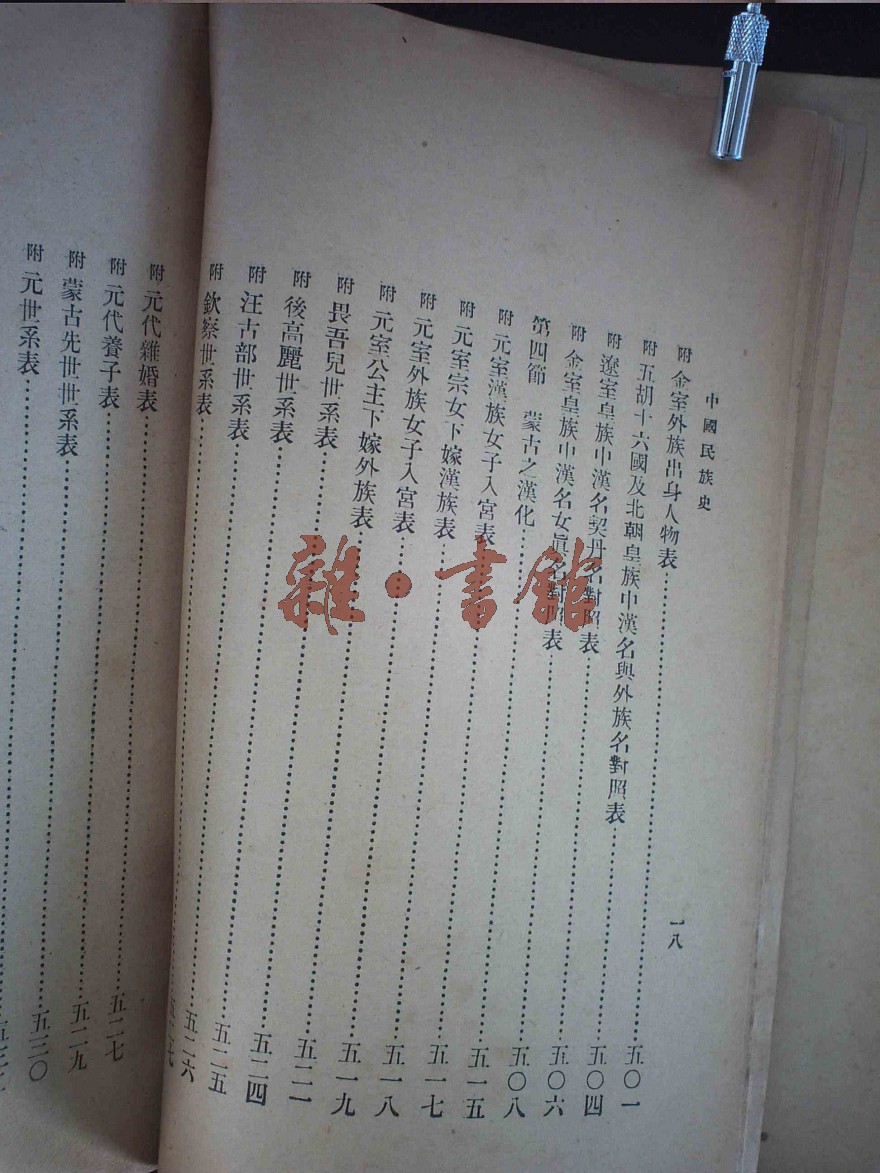 中國民族史
一八
附 金室外族出身人物表……五〇一
附 五胡十六國及北朝皇族中漢名與外族名對照表……五〇四
附 遼室皇族中漢名契丹名對照表……五〇六
附 金室皇族中漢名女眞名對照表……五〇八
第四節 蒙古之漢化……五一五
附 元室漢族女子入宮表……五一七
附 元室宗女下嫁漢族表……五一八
附 元室外族女子入宮表……五一九
附 元室公主下嫁外族表……五二一
附 畏吾兒世系表……五二四
附 後高麗世系表……五二五
附 汪古部世系表……五二六
附 欽察世系表……
附 元代雜婚表……五二七
附 元代養子表……五二九
附 蒙古先世世系表……五三〇
附 元世系表……
雜·書館